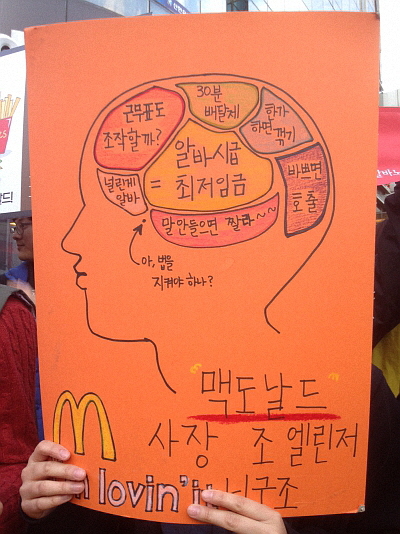 근무표도
조작할까?
30분
배달제
한가
하면 꺾기
알바시급
= 최저임금
널린게
알바
바쁘면
호출
말안들으면 짤라~~
아, 법을
지켜야 하나?
"맥도날드"
사장 조엘린저
lovin' 뇌구조